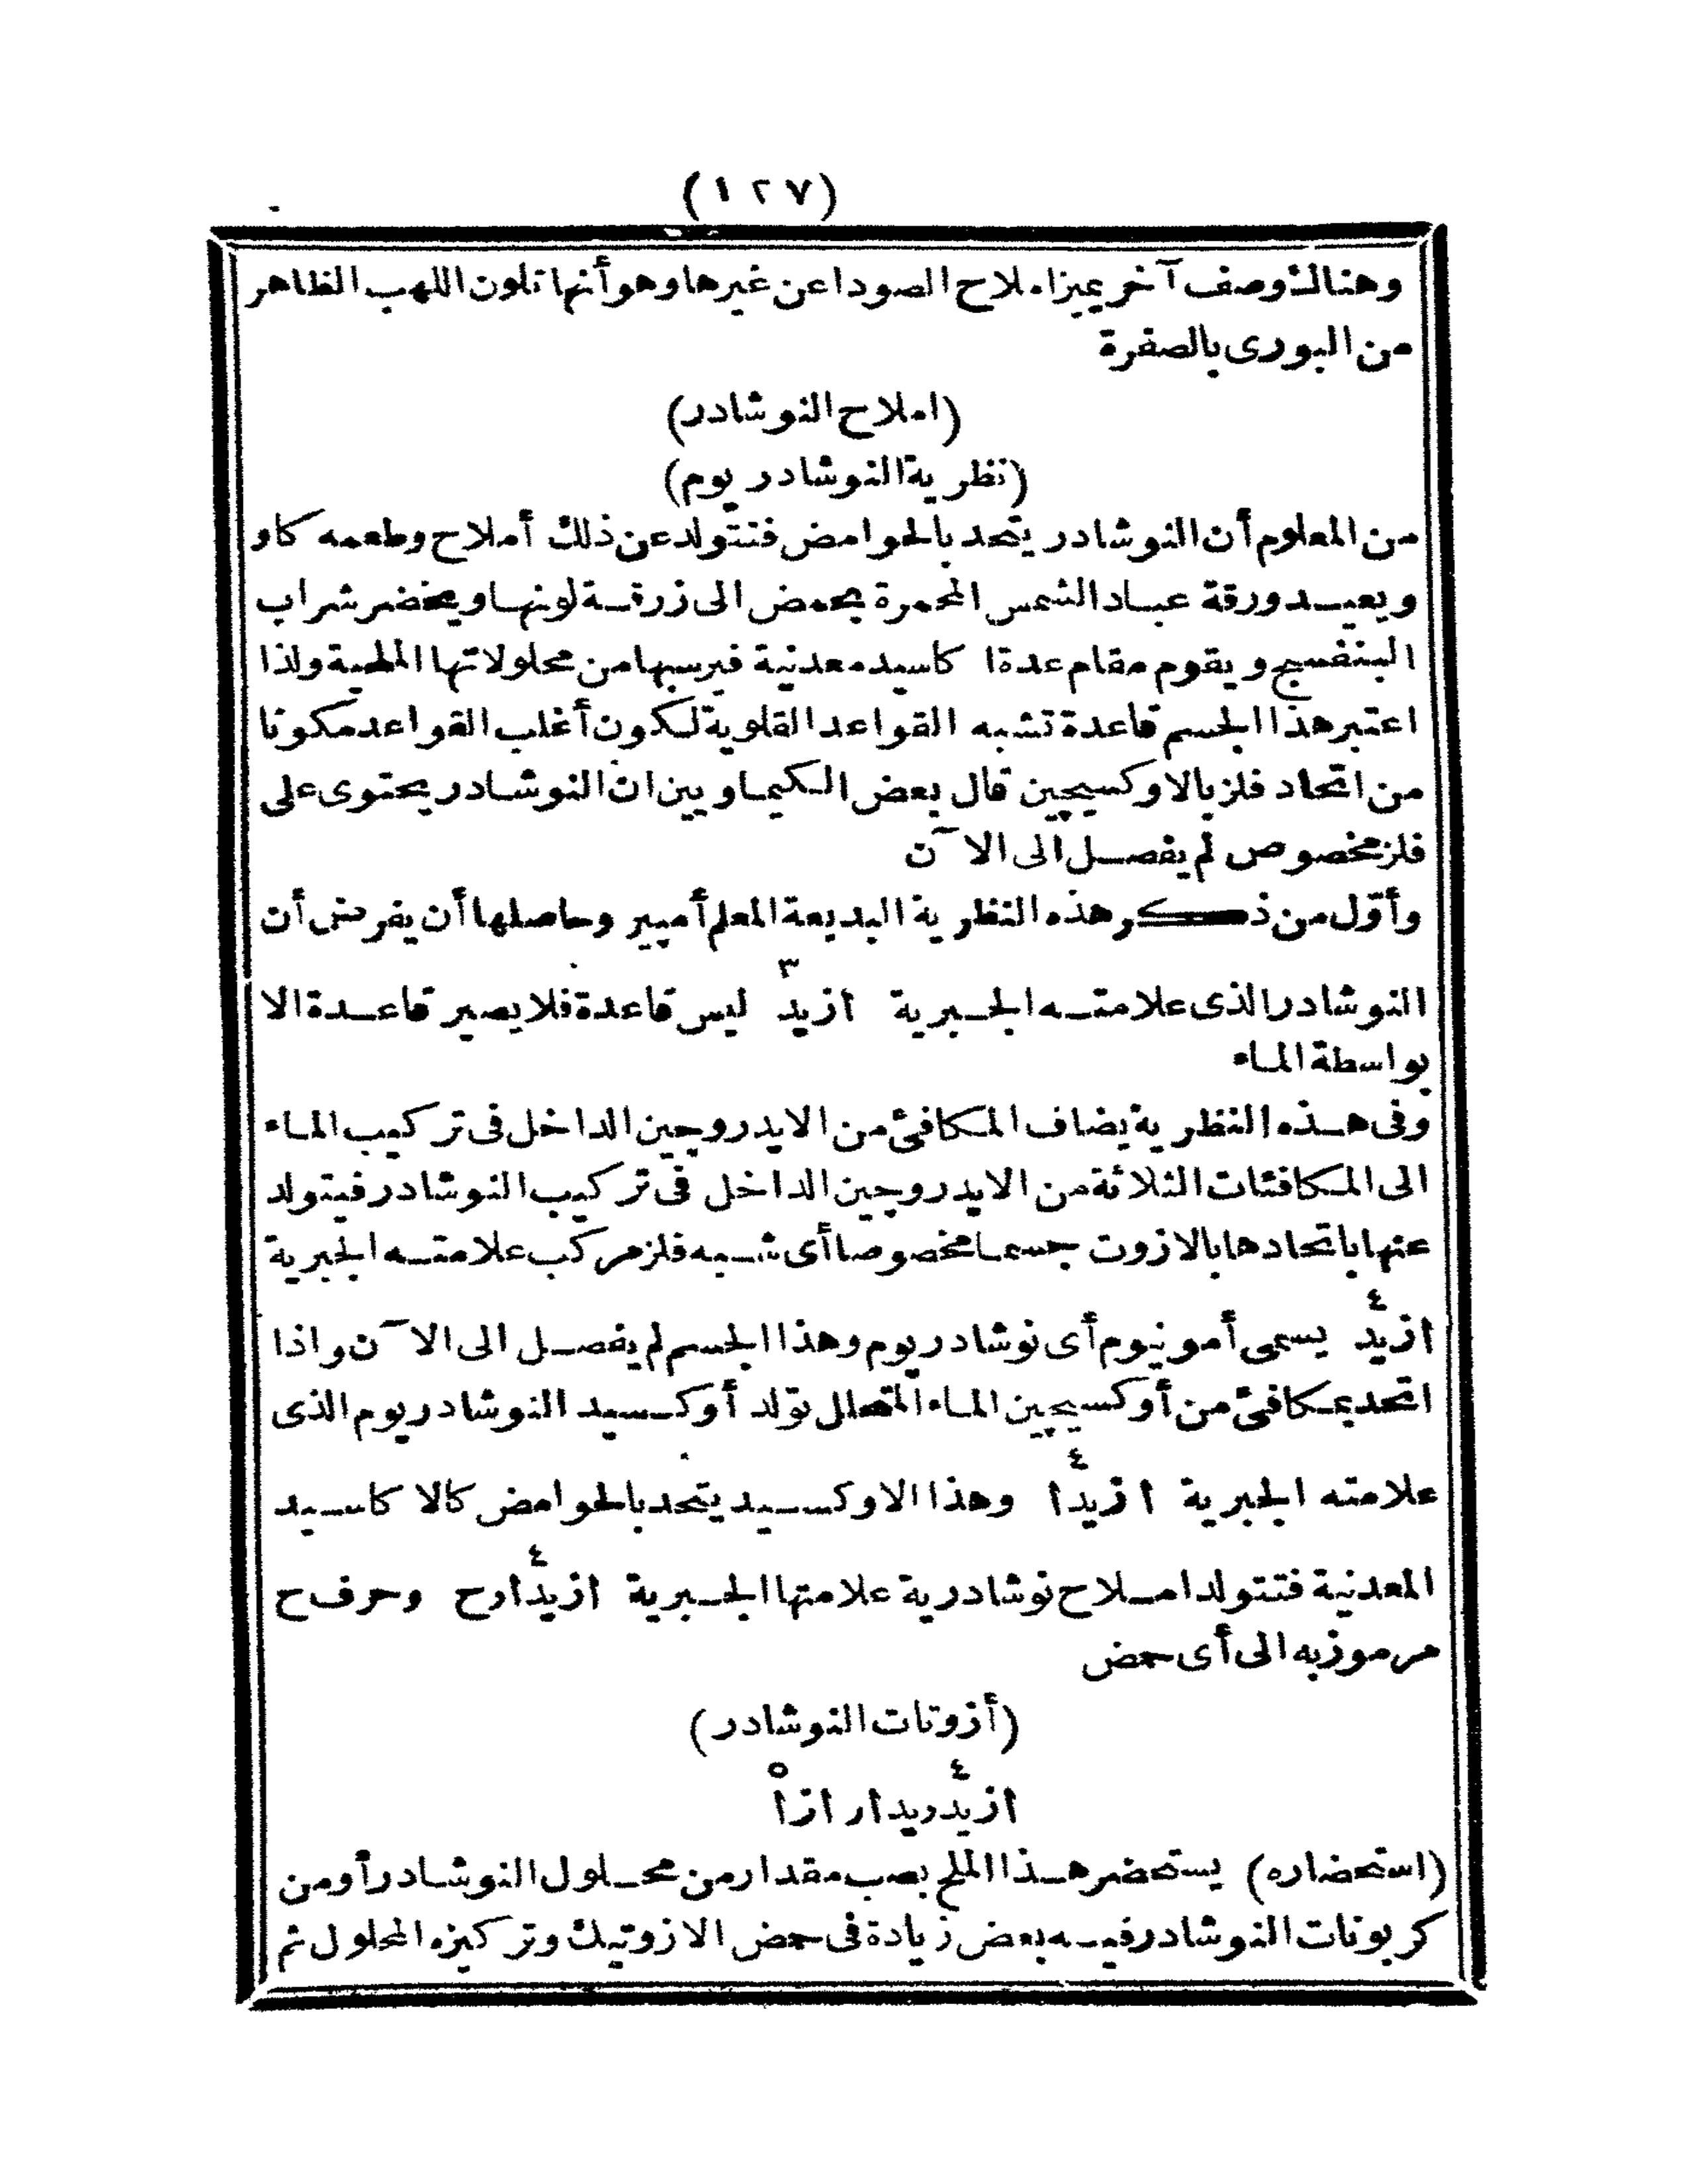 (١٢٧)
وهناك وصف آخر يميز املاح الصودا عن غيرها وهو أنها تلون اللهب الظاهر
من البورى بالصفرة
(املاح النوشادر)
(نظرية النوشادريوم)
من المعلوم أن النوشادر يتحد بالحوامض فتتولد عن ذلك أملاح وطعمه كاو
ويعيد ورقة عباد الشمس المحمرة بحمض الى زرقة لونها ويخضر شراب
البنفسج ويقوم مقام عدة اكاسيد معدنية فيرسبها من محلولاتها الملحية ولذا
اعتبر هذا الجسم قاعدة تشبه القواعد القلوية لكون أغلب القواعد مكونا
من اتحاد فلز بالاوكسيچين قال بعض الكيماويين ان النوشادر يحتوى على
فلز مخصوص لم يفصل الى الآن
وأول من ذكر هذه النظرية البديعة المعلم أمپير وحاصلها أن يفرض أن
النوشادر الذى علامته الجبرية ازيد٣ ليس قاعدة فلا يصير قاعدة الا
بواسطة الماء
وفى هذه النظرية يضاف المكافئ من الايدروچين الداخل فى تركيب الماء
الى المكافئات الثلاثة من الايدروچين الداخل فى تركيب النوشادر فيتولد
عنها باتحادها بالازوت جسما مخصوصا أى شبه فلز مركب علامته الجبرية
ازيد٤ يسمى أمونيوم أى نوشادريوم وهذا الجسم لم يفصل الى الآن واذا
اتحد بمكافئ من أوكسيچين الماء المتحلل تولد أوكسيد النوشادريوم الذى
علامته الجبرية ازيد٤ا وهذا الاوكسيد يتحد بالحوامض كالاكاسيد
المعدنية فتتولد املاح نوشادرية علامتها الجبرية ازيد٤ارح وحرف ح
مرموز به الى أى حمض
(أزوتات النوشادر)
ازيد٤ريدار ازا٥
(استحضاره) يستحضر هذا الملح بصب مقدار من محلول النوشادر أو من
كربونات النوشادر فيه بعض زيادة فى حمض الازوتيك وتركيزه المحلول ثم